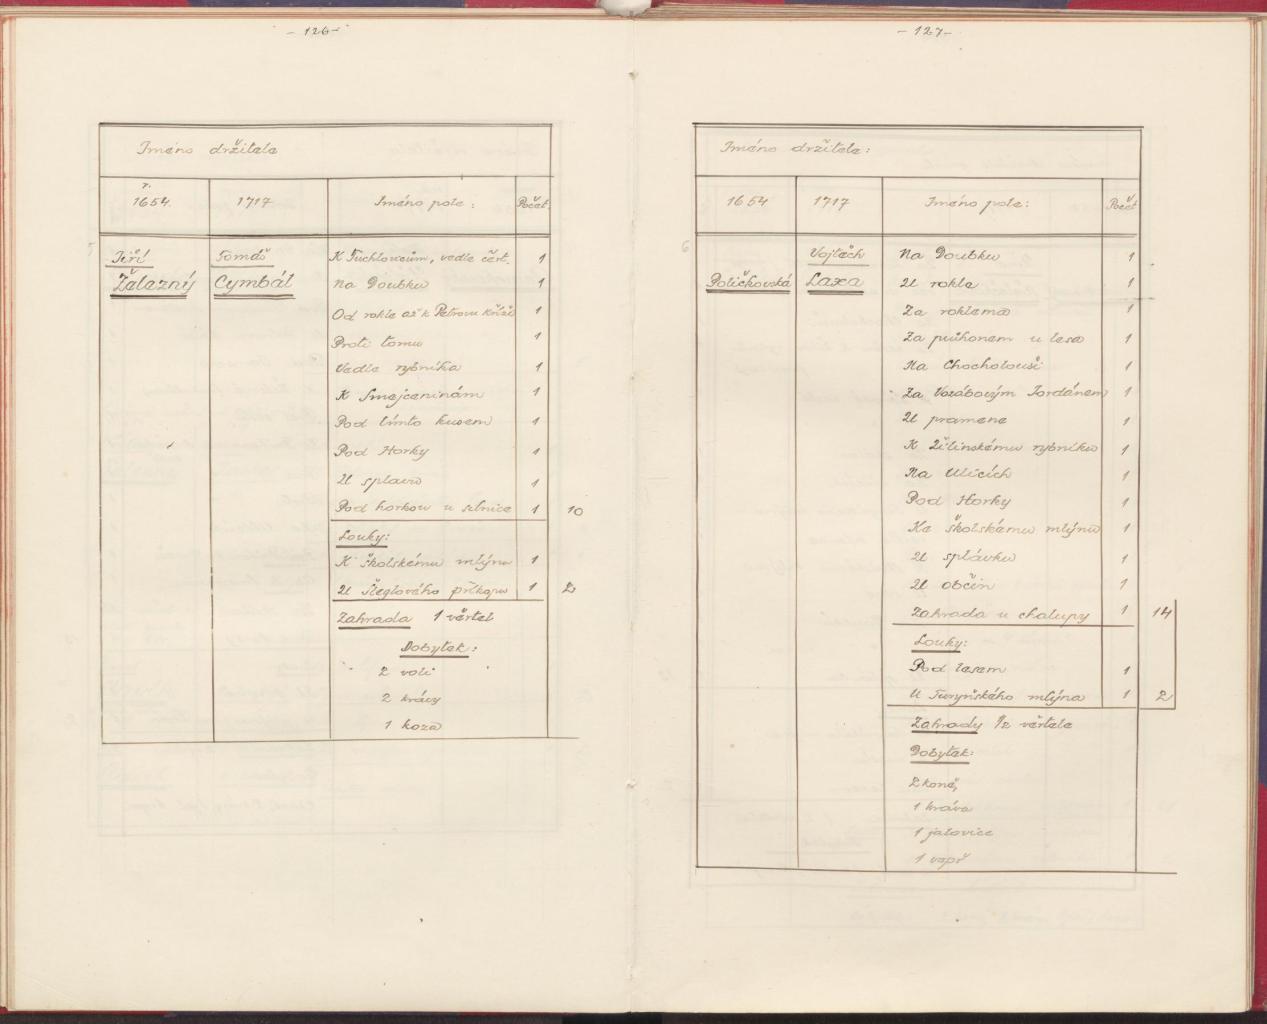 - 126 -
Jméno držitele
r.
1654. 1717 Jméno pole: Počet.
5 Jiří Tomáš K Tuchlovcům, vedle čert. 1
Železný Cymbál Na Doubku 1
Od rokle až k Petrovu kříži 1
Proti tomu 1
Vedle rybníka 1
K Smejceninám 1
Pod tímto kusem 1
Pod Horky 1
U splavu 1
Pod horkou u silnice 1 10
Louky:
K školskému mlýnu 1
U Šteglového příkopu 1 2
Zahrada 1 věrtel
Dobytek:
2 voli
2 krávy
1 koza
- 127 -
Jméno držitele:
1654 1717 Jméno pole: Počet
6 Vojtěch Na Doubku 1
Poličkovská Laxa U rokle 1
Za roklema 1
Za průhonem u lesa 1
Na Chocholouši 1
Za Vozábovým Jordánem 1
U pramene 1
K Žilinskému rybníku 1
Na Ulicích 1
Pod Horky 1
Ke školskému mlýnu 1
U splávku 1
U občin 1
Zahrada u chalupy 1 14
Louky:
Pod lesem 1
U Turyňského mlýna 1 2
Zahrady 1/2 věrtele
Dobytek:
2 koně,
1 kráva
1 jalovice
1 vepř